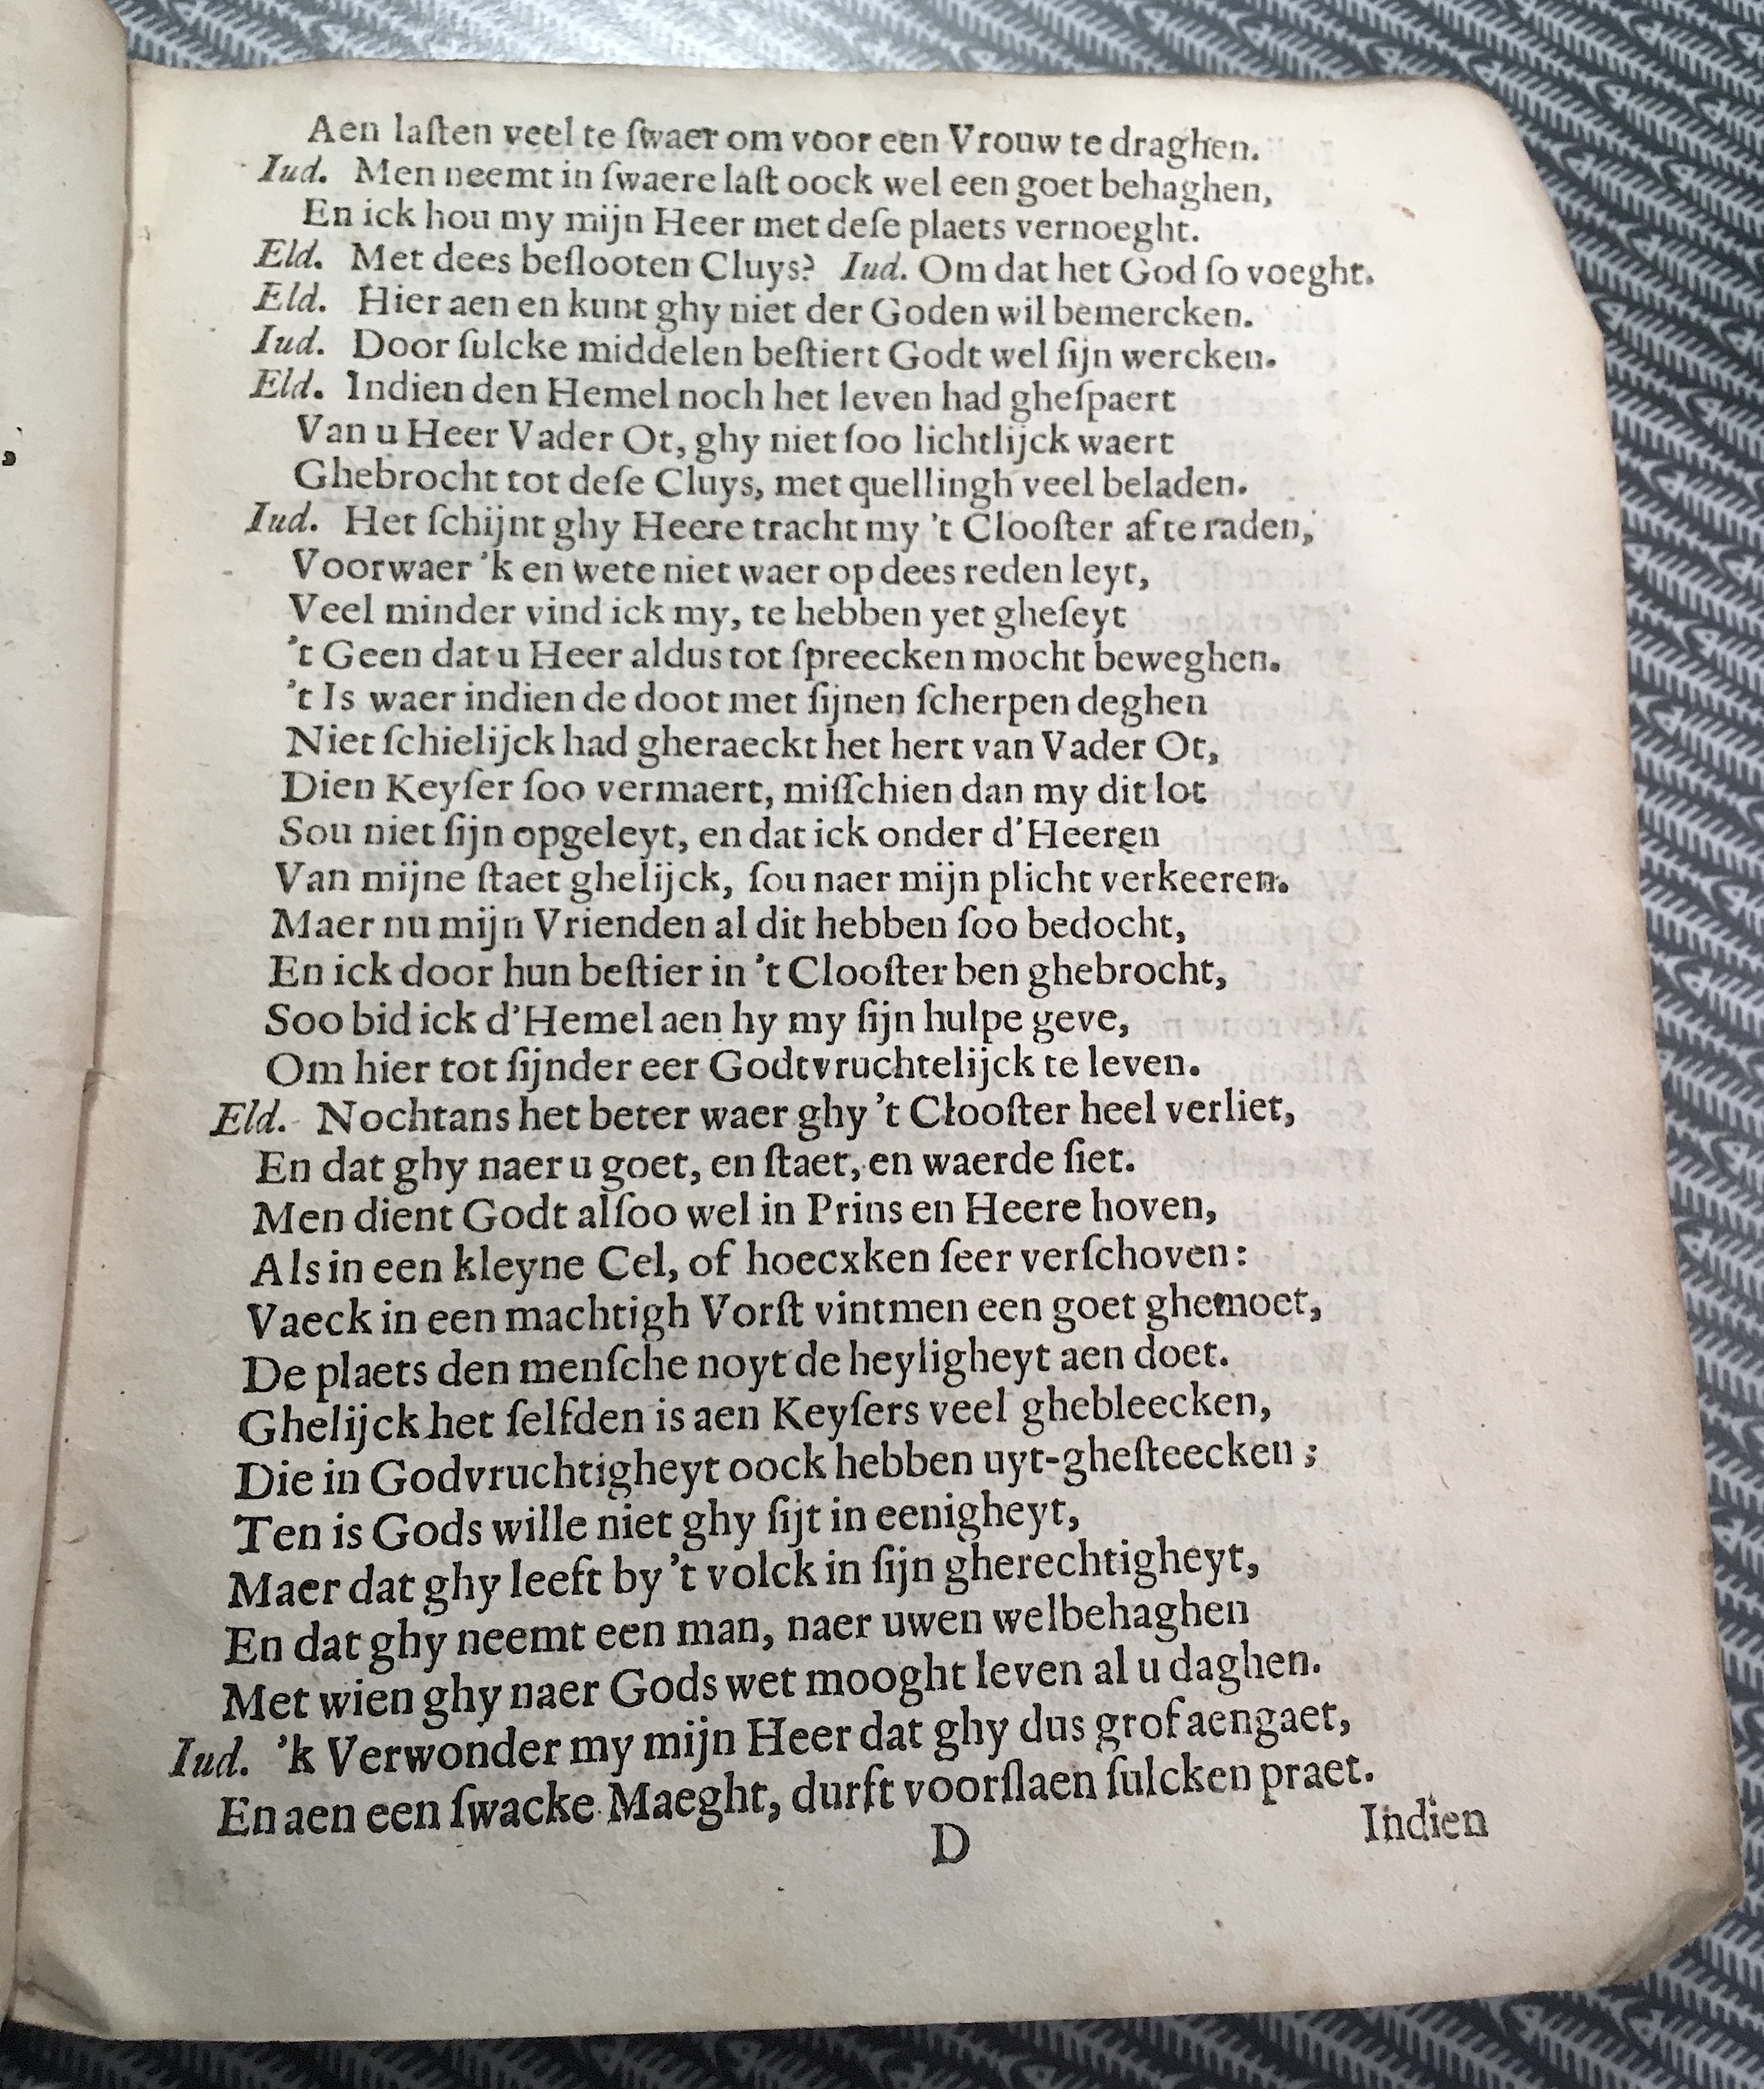 Aen laſten veel te ſwaer om voor een Vrouw te draghen.
Iud. Men neemt in ſwaere laſt oock wel een goet behaghen,
En ick hou my mijn Heer met deſe plaets vernoeght.
Eld. Met dees beſlooten Cluys? Iud. Om dat het God ſo voeght.
Eld. Hier aen en kunt ghy niet der Goden wil bemercken.
Iud. Door ſulcke middelen beſtiert Godt wel ſijn wercken.
Eld. Indien den Hemel noch het leven had gheſpaert
Van u Heer Vader Ot, ghy niet ſoo lichtlijck waert
Ghebrocht tot deſe Cluys, met quellingh veel beladen.
Iud. Het ſchijnt ghy Heere tracht my 't Clooſter af te raden,
Voorwaer 'k en wete niet waer op dees reden leyt,
Veel minder vind ick my, te hebben yet gheſeyt
't Geen dat u Heer aldus tot ſpreecken mocht beweghen.
't Is waer indien de doot met ſijnen ſcherpen deghen
Niet ſchielijck had gheraeckt het hert van Vader Ot,
Dien Keyſer ſoo vermaert, miſſchien dan my dit lot
Sou niet ſijn opgeleyt, en dat ick onder d'Heeren
Van mijne ſtaet ghelijck, ſou naer mijn plicht verkeeren.
Maer nu mijn Vrienden al dit hebben ſoo bedocht,
En ick door hun beſtier in 't Clooſter ben ghebrocht,
Soo bid ick d'Hemel aen hy my ſijn hulpe geve,
Om hier tot ſijnder eer Godtvruchtelijck te leven.
Eld. Nochtans het beter waer ghy 't Clooſter heel verliet,
En dat ghy naer u goet, en ſtaet, en waerde ſiet.
Men dient Godt alſoo wel in Prins en Heere hoven,
Als in een kleyne Cel, of hoecxken ſeer verſchoven:
Vaeck in een machtigh Vorſt vintmen een goet ghemoet,
De plaets den menſche noyt de heyligheyt aen doet.
Ghelijck het ſelfden is aen Keyſers veel ghebleecken,
Die in Godvruchtigheyt oock hebben uyt-gheſteecken;
Ten is Gods wille niet ghy ſijt in eenigheyt,
Maer dat ghy leeft by 't volck in ſijn gherechtigheyt,
En dat ghy neemt een man, naer uwen welbehaghen
Met wien ghy naer Gods wet mooght leven al u daghen.
Iud. 'k Verwonder my mijn Heer dat ghy dus grof aengaet,
En aen een ſwacke Maeght, durft voorſlaen ſulcken praet.
D
Indien